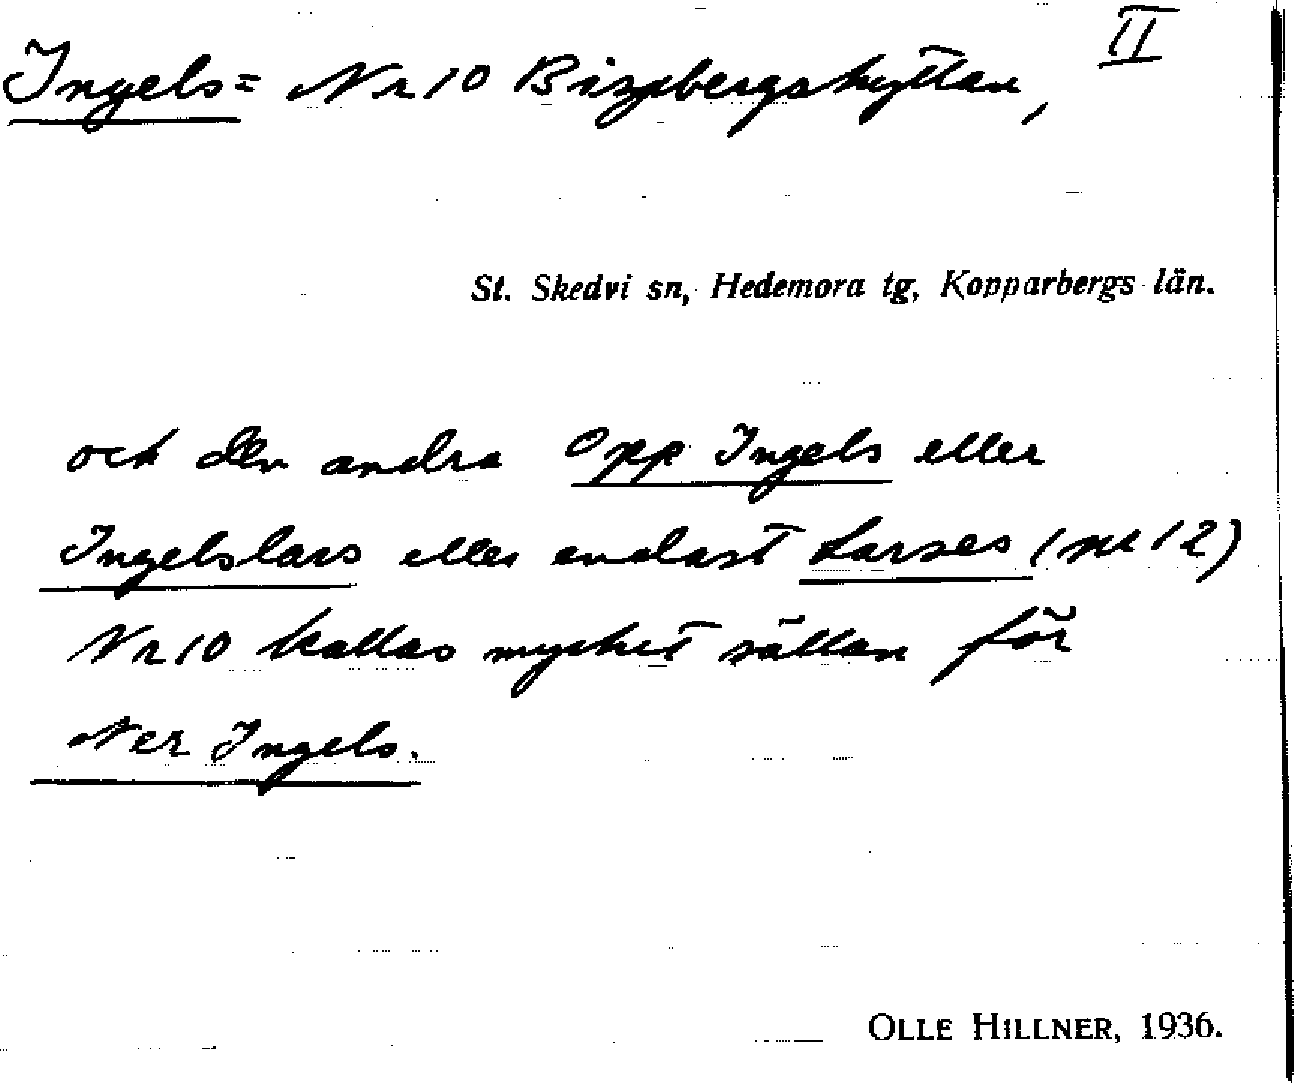 II
Ingels = Nr 10 Bispbergshyttan,
St. Skedvi sn, Hedemora tg, Kopparbergs län.
och den andra Opp Ingels eller
Ingelslars eller endast Larses (nr 12)
Nr 10 kallas mycket sällan för
Ner Ingels.
OLLE HILLNER, 1936.